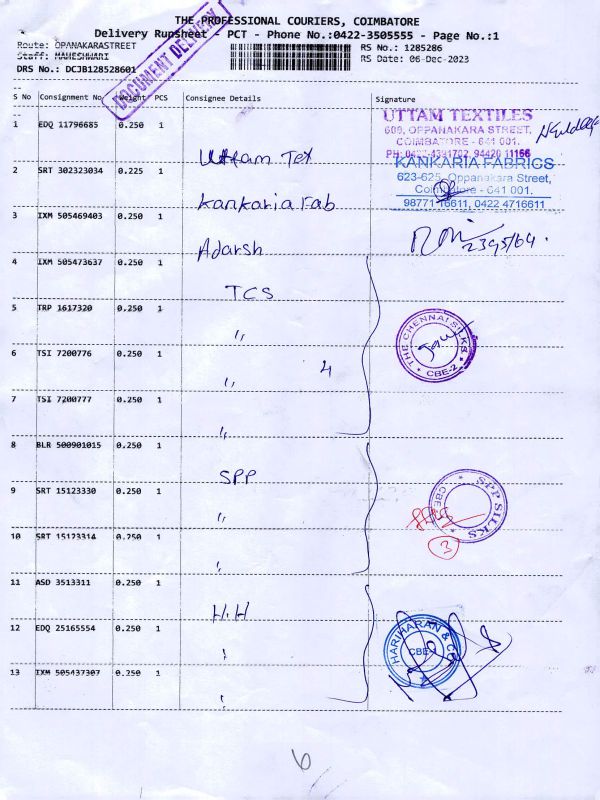 THE PROFESSIONAL COURIERS, COIMBATORE
Delivery Runsheet - PCT - Phone No.:0422-3505555 - Page No.:1
Route: OPANAKARASTREET
RS No.: 1285286
Staff: MAHESHWARI
RS Date: 06-Dec-2023
DRS No.: DCJB128528601
DOCUMENT DELIVERY
S No Consignment No. Weight PCS Consignee Details Signature
1 EDQ 11796685 0.250 1 Uttam Tex
UTTAM TEXTILES
609, OPPANAKARA STREET,
COIMBATORE - 641 001.
2 SRT 302323034 0.225 1 Kankaria Fab
KANKARIA FABRICS
623-625, Oppanakara Street,
Coimbatore - 641 001.
98771 16611, 0422 4716611
3 IXM 505469403 0.250 1 Adarsh
4 IXM 505473637 0.250 1 TCS
5 TRP 1617320 0.250 1 "
THE CHENNAI SILKS
CBE-2
6 TSI 7200776 0.250 1 "
4
7 TSI 7200777 0.250 1 "
8 BLR 500901015 0.250 1 SPP
9 SRT 15123330 0.250 1 "
SPP SILKS
CBE
3
10 SRT 15123314 0.250 1 "
11 ASD 3513311 0.250 1 H.H
12 EDQ 25165554 0.250 1 "
HARIHARAN & CO
CBE-1
13 IXM 505437307 0.250 1 "
6